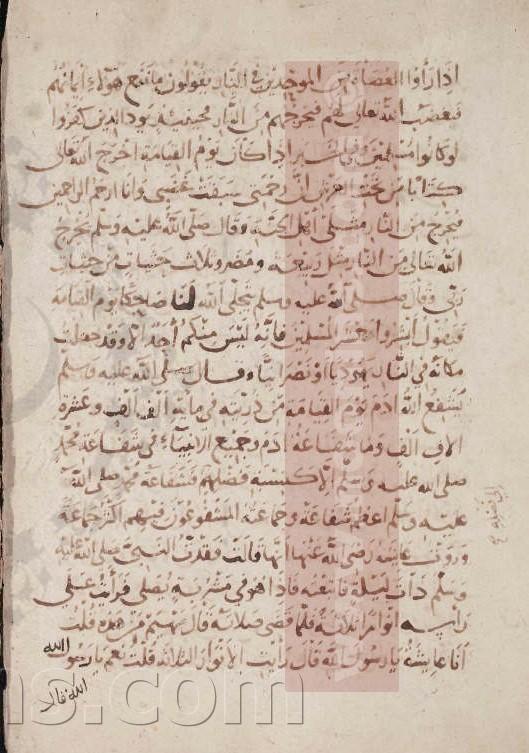 اذا رأوا العصاة من الموحدين في النار يقولون ما نفع هؤلاء ايمانهم
فيغضب الله تعالى لهم فيخرجهم من النار فحينئذ يود الذين كفروا
لو كانوا مسلمين وفي اذا كان يوم القيامة اخرج الله تعالى
كتابا من تحت العرش ان رحمتي سبقت غضبي وانا ارحم الراحمين
فيخرج من النار مثلي اهل الجنة وقال صلى الله عليه وسلم يخرج
الله تعالى من النار مثل ربيعة ومضر وثلاث حثيات من حثيات
ربي وقال صلى الله عليه وسلم يتجلى الله لنا ضاحكا يوم القيامة
فيقول ابشروا معشر المسلمين فانه ليس منكم أحد الا وقد جعلت
مكانه في النار يهوديا او نصرانيا وقال صلى الله عليه وسلم
يشفع الله ادم يوم القيامة من ذريته في مائة الف الف وعشرة
الاف الف وما شفاعة ادم وجميع الانبياء في شفاعة محمد
صلى الله عليه وسلم الا فشفاعة محمد صلى الله
عليه وسلم اعظم شفاعة وجماعته المشفوعون فيهم اكثر جماعة
وروت عائشة رضي الله عنها انها قالت فقدت النبي صلى الله عليه
وسلم ذات ليلة فاتبعته فاذا هو في مشربة يصلي فرأيت على
رأسه انوارا ثلاثة فلما قضى صلاته قال مهيم من هذه قلت
أنا عايشة يا رسول الله قال رأيت الانوار الثلاثة قلت نعم يا رسول الله
الله قال
ns.com